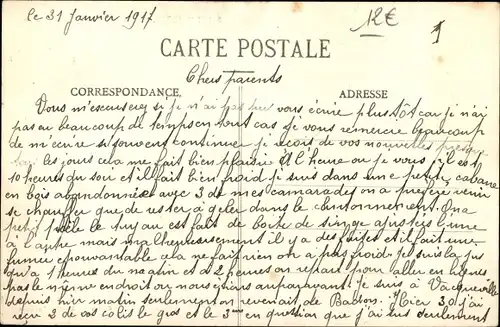 le 31 Janvier 1917
12€
1
CARTE POSTALE
Chers parents
CORRESPONDANCE
ADRESSE
Vous m'excuserez si je n'ai pas pu vous écrire plus tôt car je n'ai
pas eu beaucoup de temps en tout cas je vous remercie beaucoup
de m'écrire si souvent continuer je reçois de vos nouvelles presque
les jours cela me fait bien plaisir. A l'heure ou je vous il est
10 heures du soir et il fait bien froid je suis dans une petite cabane
en bois abandonnée avec 3 de mes camarades on a préféré venir
se chauffer que de rester à geler dans le cantonnement. On a
petit poële le tuyau est fait de boite de singe ajustées l'une
à l'autre mais malheureusement il y a des fuites et il fait une
fumée épouvantable cela ne fait rien on a pas froid je suis là jus
qu'à 1 heures du matin et à 2 heures on repart pour aller en
pas le même endroit ou nous étions auparavant je suis à Vacqueville
depuis hier matin seulement on revenait de Badon. Hier 30 j'ai
reçu 2 de vos colis le gros et le 3me en question que j'ai eu seulement